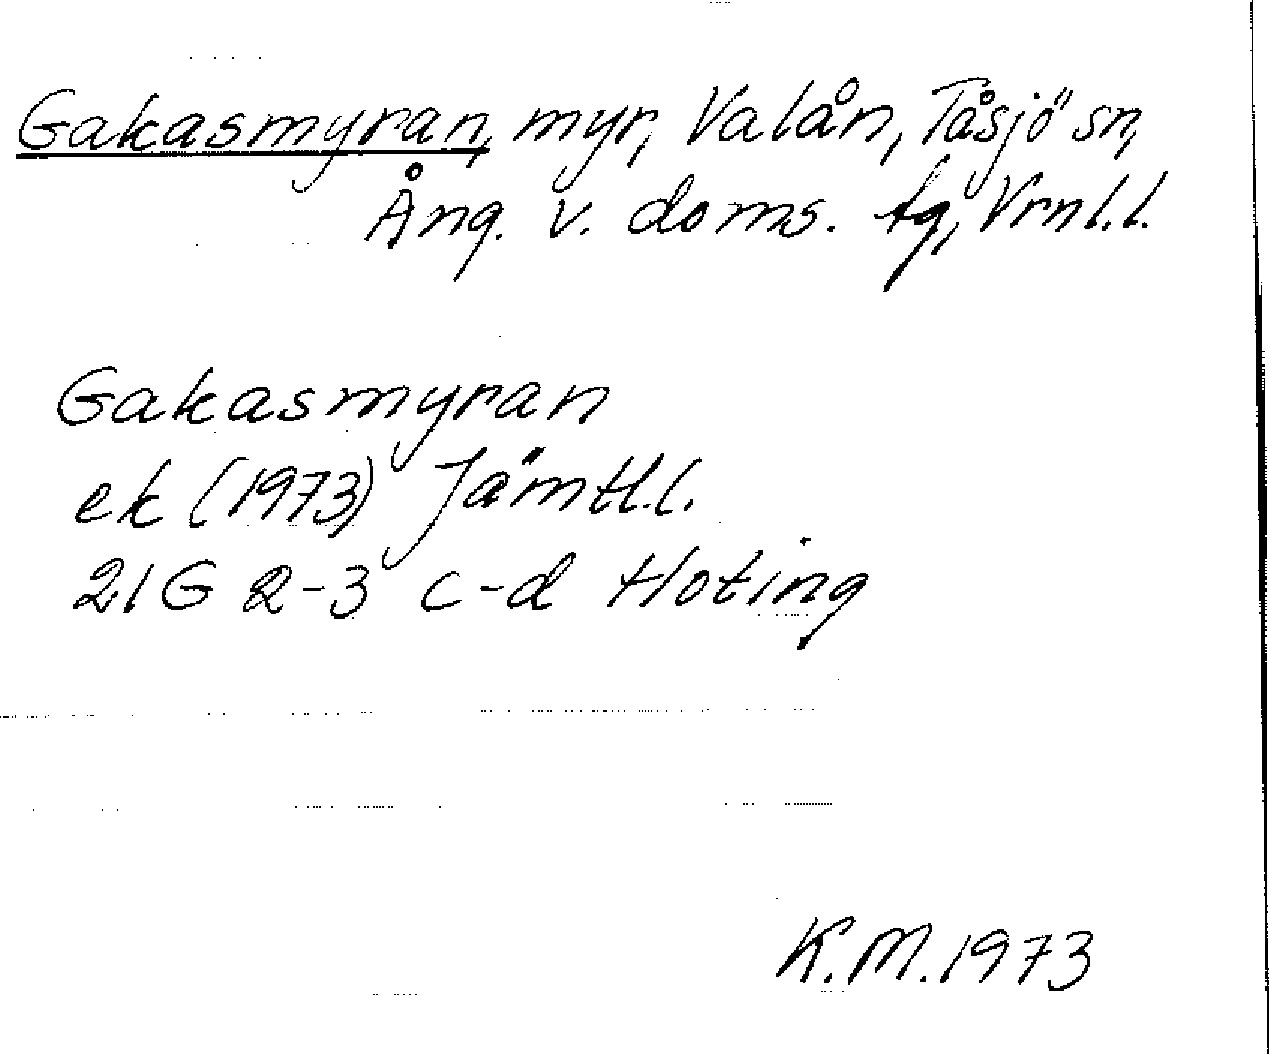 Gakasmyran, myr, Valån, Tåsjö sn,
Ång. v. doms. tg, Vrnl.l.
Gakasmyran
ek (1973) Jämtl.l.
21G 2-3 c-d Hoting
K.M. 1973